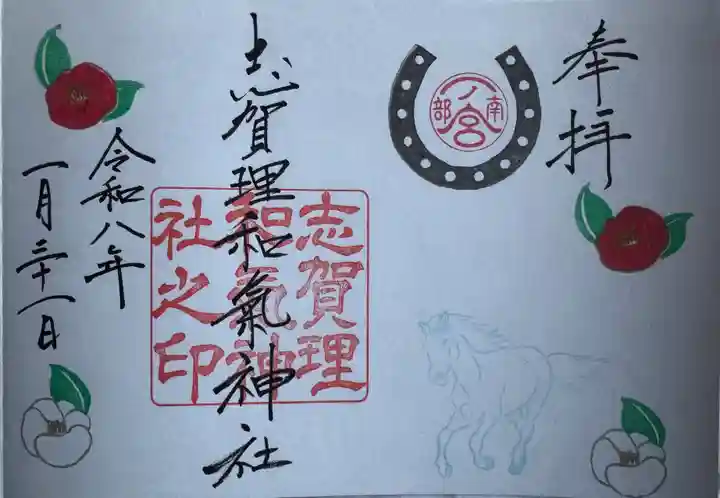 奉拝
一ノ宮
南部
志賀理和氣神社
志賀理
和氣神
社之印
令和八年
一月三十一日